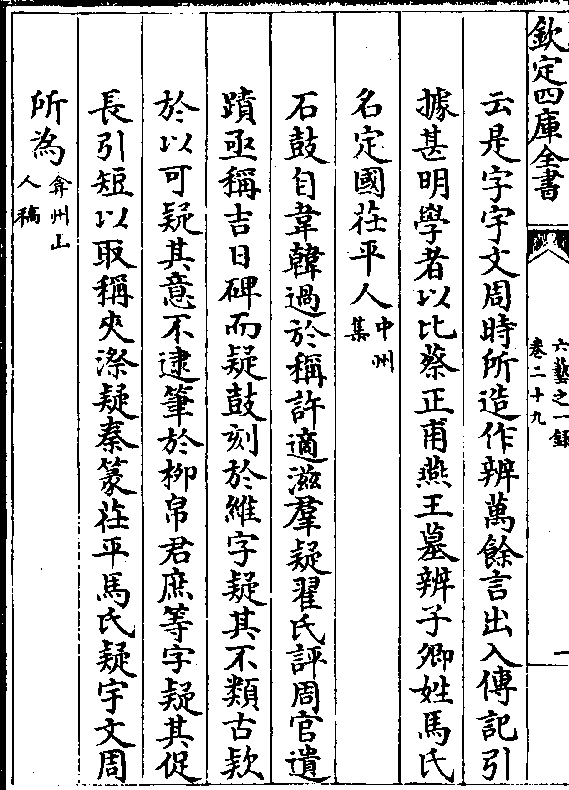 欽定四庫全書
六藝之一錄
卷二十九
一
云是字宇文周時所造作辨萬餘言出入傳記引
據甚明學者以比蔡正甫燕王墓辨子卿姓馬氏
名定國茌平人中州集
石鼓自韋韓過於稱許適滋羣疑翟氏評周官遺
蹟亟稱吉日碑而疑鼓刻於維字疑其不類古欵
於以可疑其意不逮筆於栁帛君庶等字疑其促
長引短以取稱夾漈疑秦篆茌平馬氏疑宇文周
所為弇州山人稿